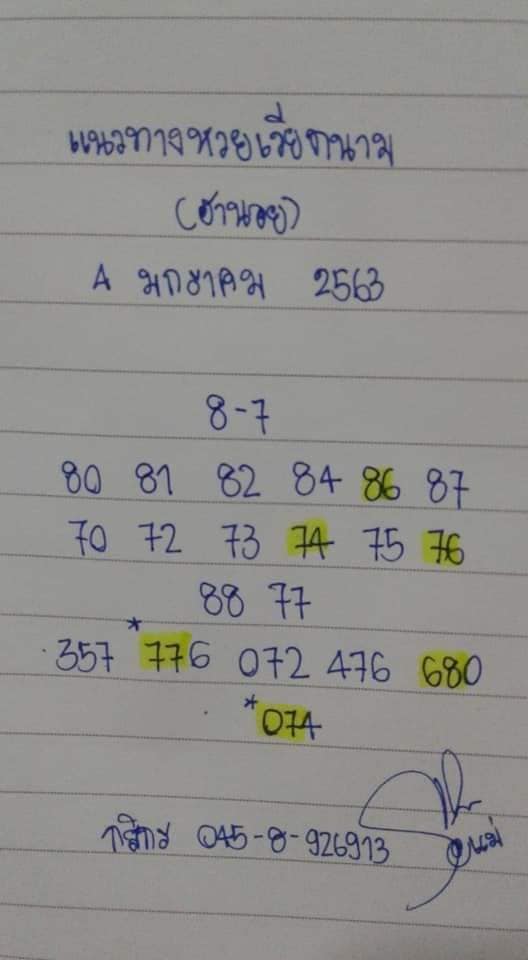 แนวทางหวยเวียดนาม
(ฮานอย)
4 มกราคม 2563
8-7
80 81 82 84 86 87
70 72 73 74 75 76
88 77
357 *776 072 476 680
*074
กสิกร 045-8-926913